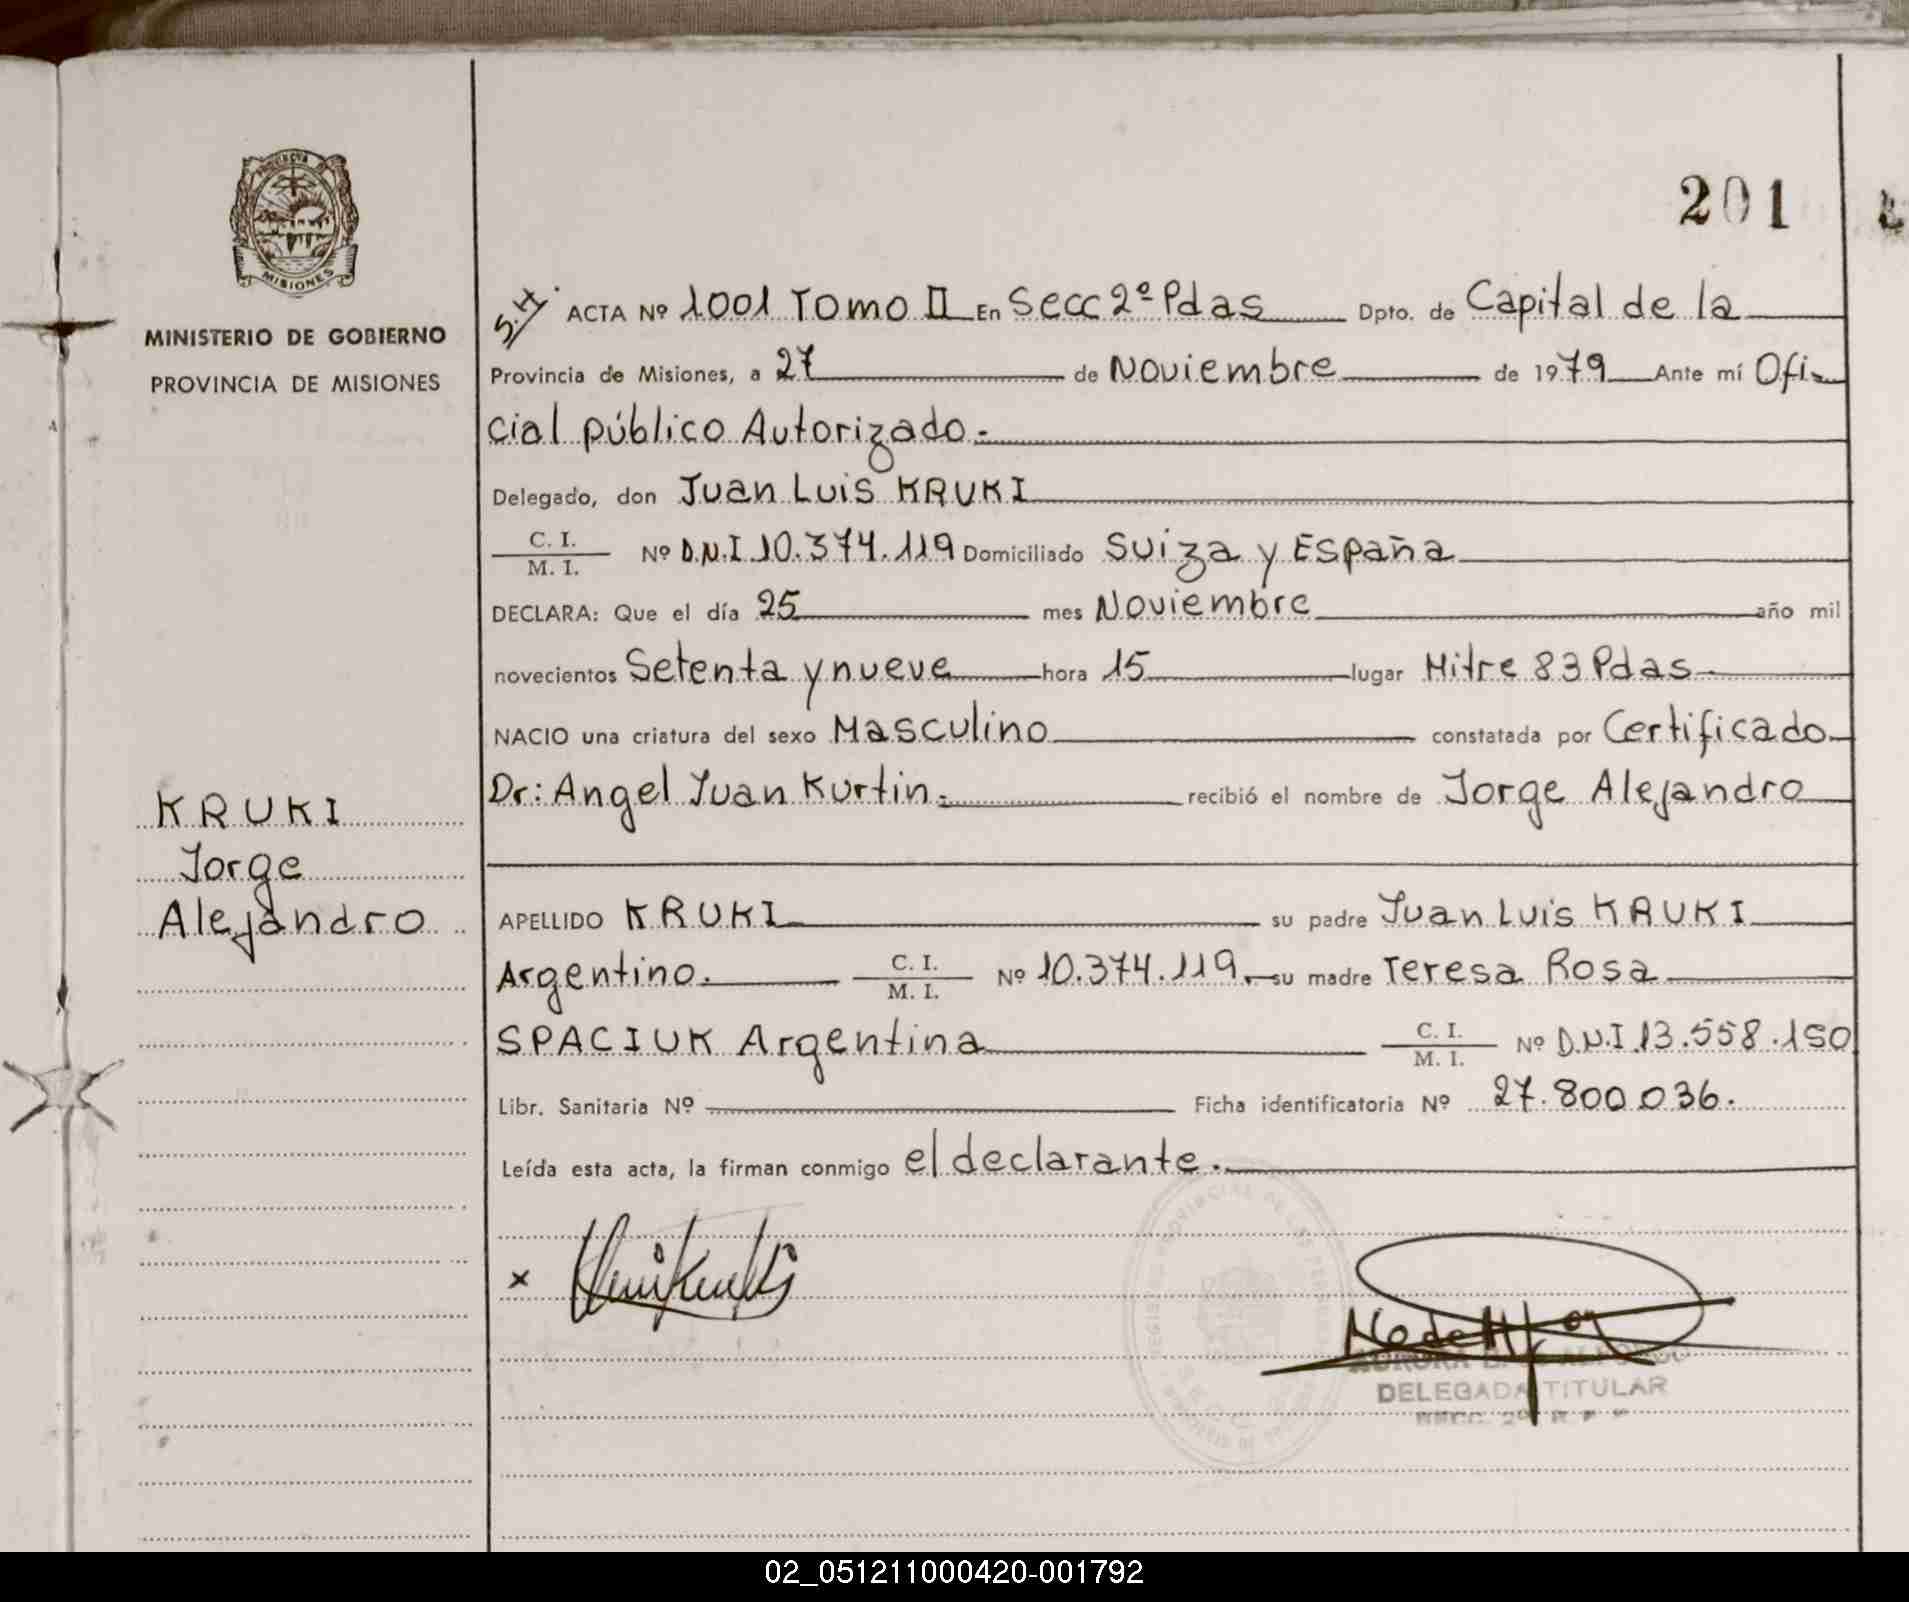 PROVINCIA DE
MISIONES
MINISTERIO DE GOBIERNO
PROVINCIA DE MISIONES
KRUKI
Jorge
Alejandro
201
S.H. ACTA Nº 1001 Tomo II En Secc 2º Pdas Dpto. de Capital de la
Provincia de Misiones, a 27 de Noviembre de 1979 Ante mí Ofi-
cial público Autorizado.-
Delegado, don Juan Luis KRUKI
C. I.
M. I. Nº D.N.I 10.374.119 Domiciliado Suiza y España
DECLARA: Que el día 25 mes Noviembre año mil
novecientos Setenta y nueve hora 15 lugar Mitre 83 Pdas
NACIO una criatura del sexo Masculino constatada por Certificado
Dr: Angel Juan Kurtin.- recibió el nombre de Jorge Alejandro
APELLIDO KRUKI su padre Juan Luis KRUKI
Argentino. C. I.
M. I. Nº 10.374.119. su madre Teresa Rosa
SPACIUK Argentina C. I.
M. I. Nº D.N.I 13.558.150
Libr. Sanitaria Nº Ficha identificatoria Nº 27.800036.
Leída esta acta, la firman conmigo el declarante.
x
DELEGADA TITULAR
02_051211000420-001792